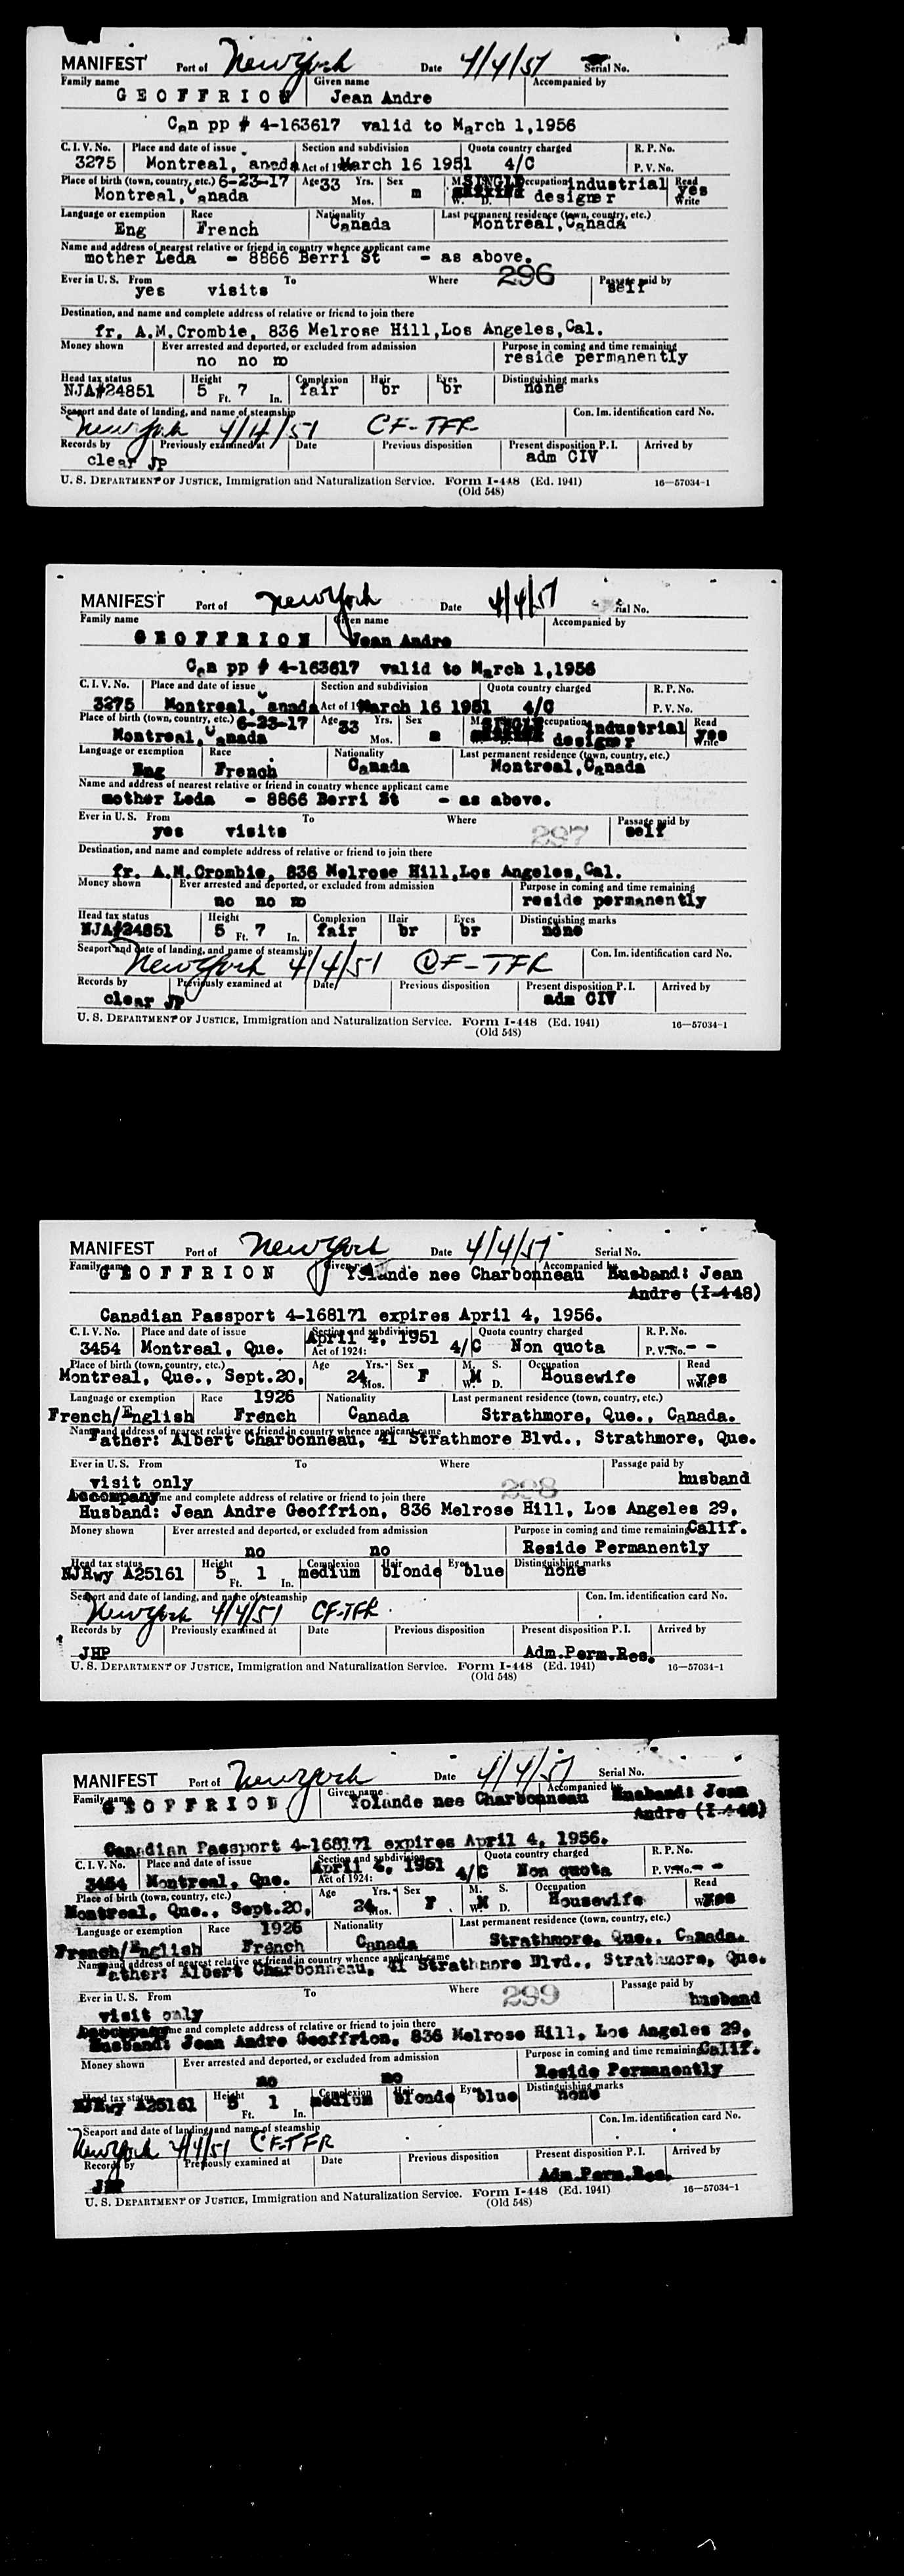 MANIFEST Port of New York Date 4/4/51 Serial No.
Family name Given name Accompanied by
GEOFFRION Jean Andre
Can pp # 4-163617 valid to March 1,1956
C. I. V. No. Place and date of issue Section and subdivision Quota country charged R. P. No.
3275 Montreal, Canada Act of 1924: March 16 1951 4/C P. V. No.
Place of birth (town, country, etc.) 6-23-17 Age 33 Yrs. Sex M. SINGLE Occupation industrial Read yes
Montreal, Canada Mos. m W. D. designer Write
Language or exemption Race Nationality Last permanent residence (town, country, etc.)
Eng French Canada Montreal, Canada
Name and address of nearest relative or friend in country whence applicant came
mother Leda - 8866 Berri St - as above.
Ever in U. S. From To Where 296 Passage paid by
yes visits self
Destination, and name and complete address of relative or friend to join there
fr. A.M.Crombie, 836 Melrose Hill,Los Angeles,Cal.
Money shown Ever arrested and deported, or excluded from admission Purpose in coming and time remaining
no no no reside permanently
Head tax status Height Complexion Hair Eyes Distinguishing marks
NJA#24851 5 Ft. 7 In. fair br br none
Seaport and date of landing, and name of steamship Con. Im. identification card No.
New York 4/4/51 CF-TFR
Records by Previously examined at Date Previous disposition Present disposition P. I. Arrived by
clear JP adm CIV
U. S. DEPARTMENT OF JUSTICE, Immigration and Naturalization Service. Form I-448 (Ed. 1941) 16—57034-1
(Old 548)
MANIFEST Port of New York Date 4/4/51 Serial No.
Family name Given name Accompanied by
GEOFFRION Jean Andre
Can pp # 4-163617 valid to March 1,1956
C. I. V. No. Place and date of issue Section and subdivision Quota country charged R. P. No.
3275 Montreal, Canada Act of 1924: March 16 1951 4/C P. V. No.
Place of birth (town, country, etc.) 6-23-17 Age 33 Yrs. Sex M. SINGLE Occupation industrial Read yes
Montreal, Canada Mos. m W. D. designer Write
Language or exemption Race Nationality Last permanent residence (town, country, etc.)
Eng French Canada Montreal,Canada
Name and address of nearest relative or friend in country whence applicant came
mother Leda - 8866 Berri St - as above.
Ever in U. S. From To Where 297 Passage paid by
yes visits self
Destination, and name and complete address of relative or friend to join there
fr. A.M.Crombie, 836 Melrose Hill,Los Angeles,Cal.
Money shown Ever arrested and deported, or excluded from admission Purpose in coming and time remaining
no no no reside permanently
Head tax status Height Complexion Hair Eyes Distinguishing marks
NJA#24851 5 Ft. 7 In. fair br br none
Seaport and date of landing, and name of steamship Con. Im. identification card No.
New York 4/4/51 CF-TFR
Records by Previously examined at Date Previous disposition Present disposition P. I. Arrived by
clear JP adm CIV
U. S. DEPARTMENT OF JUSTICE, Immigration and Naturalization Service. Form I-448 (Ed. 1941) 16—57034-1
(Old 548)
MANIFEST Port of New York Date 4/4/51 Serial No.
Family name Given name Accompanied by
GEOFFRION Yolande nee Charbonneau Husband: Jean
Andre (I-448)
Canadian Passport 4-168171 expires April 4, 1956.
C. I. V. No. Place and date of issue Section and subdivision Quota country charged R. P. No.
3454 Montreal, Que. April 4, 1951 Act of 1924: 4/C Non quota P. V. No. - -
Place of birth (town, country, etc.) Age Yrs. Sex M. S. Occupation Read
Montreal, Que., Sept.20, 24 Mos. F M W. D. Housewife yes Write
Language or exemption Race 1926 Nationality Last permanent residence (town, country, etc.)
French/English French Canada Strathmore, Que., Canada.
Name and address of nearest relative or friend in country whence applicant came
Father: Albert Charbonneau, 41 Strathmore Blvd., Strathmore, Que.
Ever in U. S. From To Where 298 Passage paid by
visit only husband
Accompany name and complete address of relative or friend to join there
Husband: Jean Andre Geoffrion, 836 Melrose Hill, Los Angeles 29,
Money shown Ever arrested and deported, or excluded from admission Purpose in coming and time remaining Calif.
no no Reside Permanently
Head tax status Height Complexion Hair Eyes Distinguishing marks
NJRwy A25161 5 Ft. 1 In. medium blonde blue none
Seaport and date of landing, and name of steamship Con. Im. identification card No.
New York 4/4/51 CF-TFR
Records by Previously examined at Date Previous disposition Present disposition P. I. Arrived by
JHP Adm.Perm.Res.
U. S. DEPARTMENT OF JUSTICE, Immigration and Naturalization Service. Form I-448 (Ed. 1941) 16—57034-1
(Old 548)
MANIFEST Port of New York Date 4/4/51 Serial No.
Family name Given name Accompanied by
GEOFFRION Yolande nee Charbonneau Husband: Jean
Andre (I-448)
Canadian Passport 4-168171 expires April 4, 1956.
C. I. V. No. Place and date of issue Section and subdivision Quota country charged R. P. No.
3454 Montreal, Que. April 4, 1951 Act of 1924: 4/C Non quota P. V. No. - -
Place of birth (town, country, etc.) Age Yrs. Sex M. S. Occupation Read
Montreal, Que., Sept.20, 24 Mos. F M W. D. Housewife yes
Language or exemption Race 1926 Nationality Last permanent residence (town, country, etc.)
French/English French Canada Strathmore, Que., Canada.
Name and address of nearest relative or friend in country whence applicant came
Father: Albert Charbonneau, 41 Strathmore Blvd., Strathmore, Que.
Ever in U. S. From To Where 299 Passage paid by
visit only husband
Accompany name and complete address of relative or friend to join there
Husband: Jean Andre Geoffrion, 836 Melrose Hill, Los Angeles 29,
Money shown Ever arrested and deported, or excluded from admission Purpose in coming and time remaining Calif.
no no Reside Permanently
Head tax status Height Complexion Hair Eyes Distinguishing marks
NJRwy A25161 5 Ft. 1 In. medium blonde blue none
Seaport and date of landing, and name of steamship Con. Im. identification card No.
New York 4/4/51 CF-TFR
Records by Previously examined at Date Previous disposition Present disposition P. I. Arrived by
JHP Adm.Perm.Res.
U. S. DEPARTMENT OF JUSTICE, Immigration and Naturalization Service. Form I-448 (Ed. 1941) 16—57034-1
(Old 548)